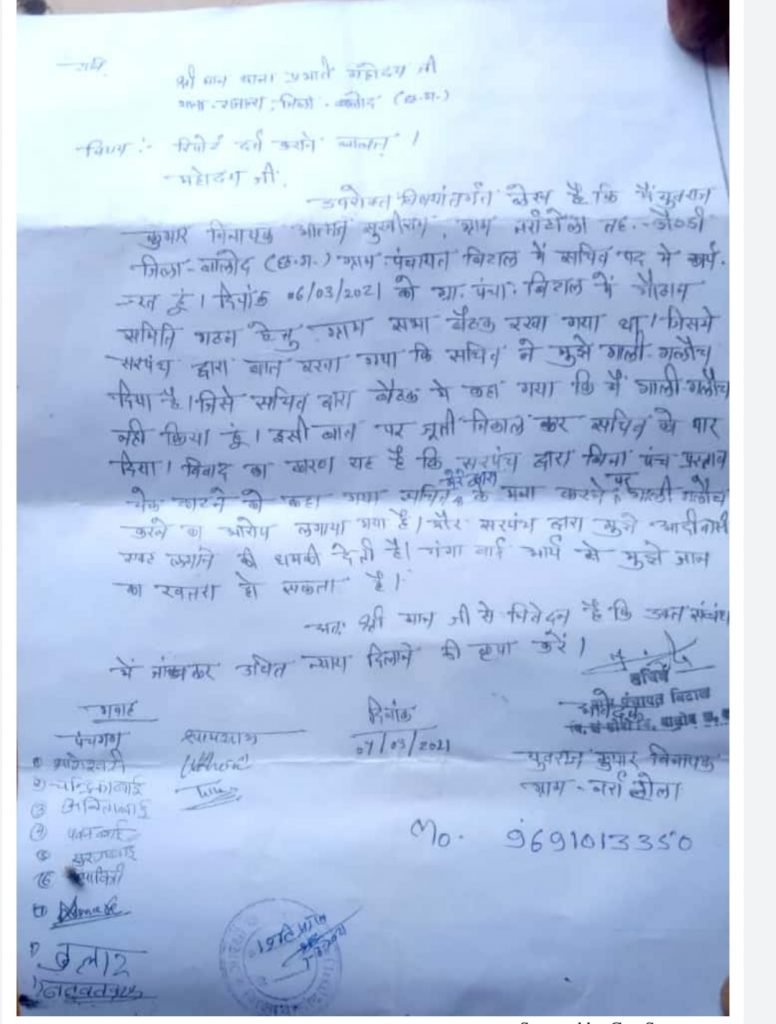 प्रति,
श्री मान थाना प्रभारी महोदय जी
थाना - जिला - बालोद (छ.ग.)
विषय :- रिपोर्ट दर्ज कराने बाबत् ।
महोदय जी,
उपरोक्त विषयांतर्गत लेख है कि मैं युवराज
कुमार विनायक आत्मज ग्राम तह. डौण्डी
जिला - बालोद (छ.ग.) ग्राम पंचायत विटाल में सचिव पद में कार्य
रत हूं । दिनांक 06/03/2021 को ग्रा. पंचा. विटाल में गौठान
समिति गठन हेतु ग्राम सभा बैठक रखा गया था । जिसमे
सरपंच द्वारा बात रखा गया कि सचिव ने मुझे गाली गलौच
दिया है । जिसे सचिव द्वारा बैठक मे कहा गया कि मैं गाली गलौच
नही किया हूं । इसी बात पर जूती निकाल कर सचिव को मार
दिया । विवाद का कारण यह है कि सरपंच द्वारा बिना पंच प्रस्ताव
चेक काटने को कहा गया सचिव मेरे द्वारा के मना करने पर गाली गलौच
करने का आरोप लगाया गया है । और सरपंच द्वारा मुझे आदीवासी
एक्ट लगाने की धमकी देती है । गंगा बाई आर्य से मुझे जान
का खतरा हो सकता है ।
अतः श्री मान जी से निवेदन है कि उक्त संबंध
में जांचकर उचित न्याय दिलाने की कृपा करें ।
सचिव
ग्राम पंचायत विटाल
गवाह
दिनांक
आवेदक
पंचगण
07/03/2021
युवराज कुमार विनायक
ग्राम - नर्राटोला
Mo. 9691013350